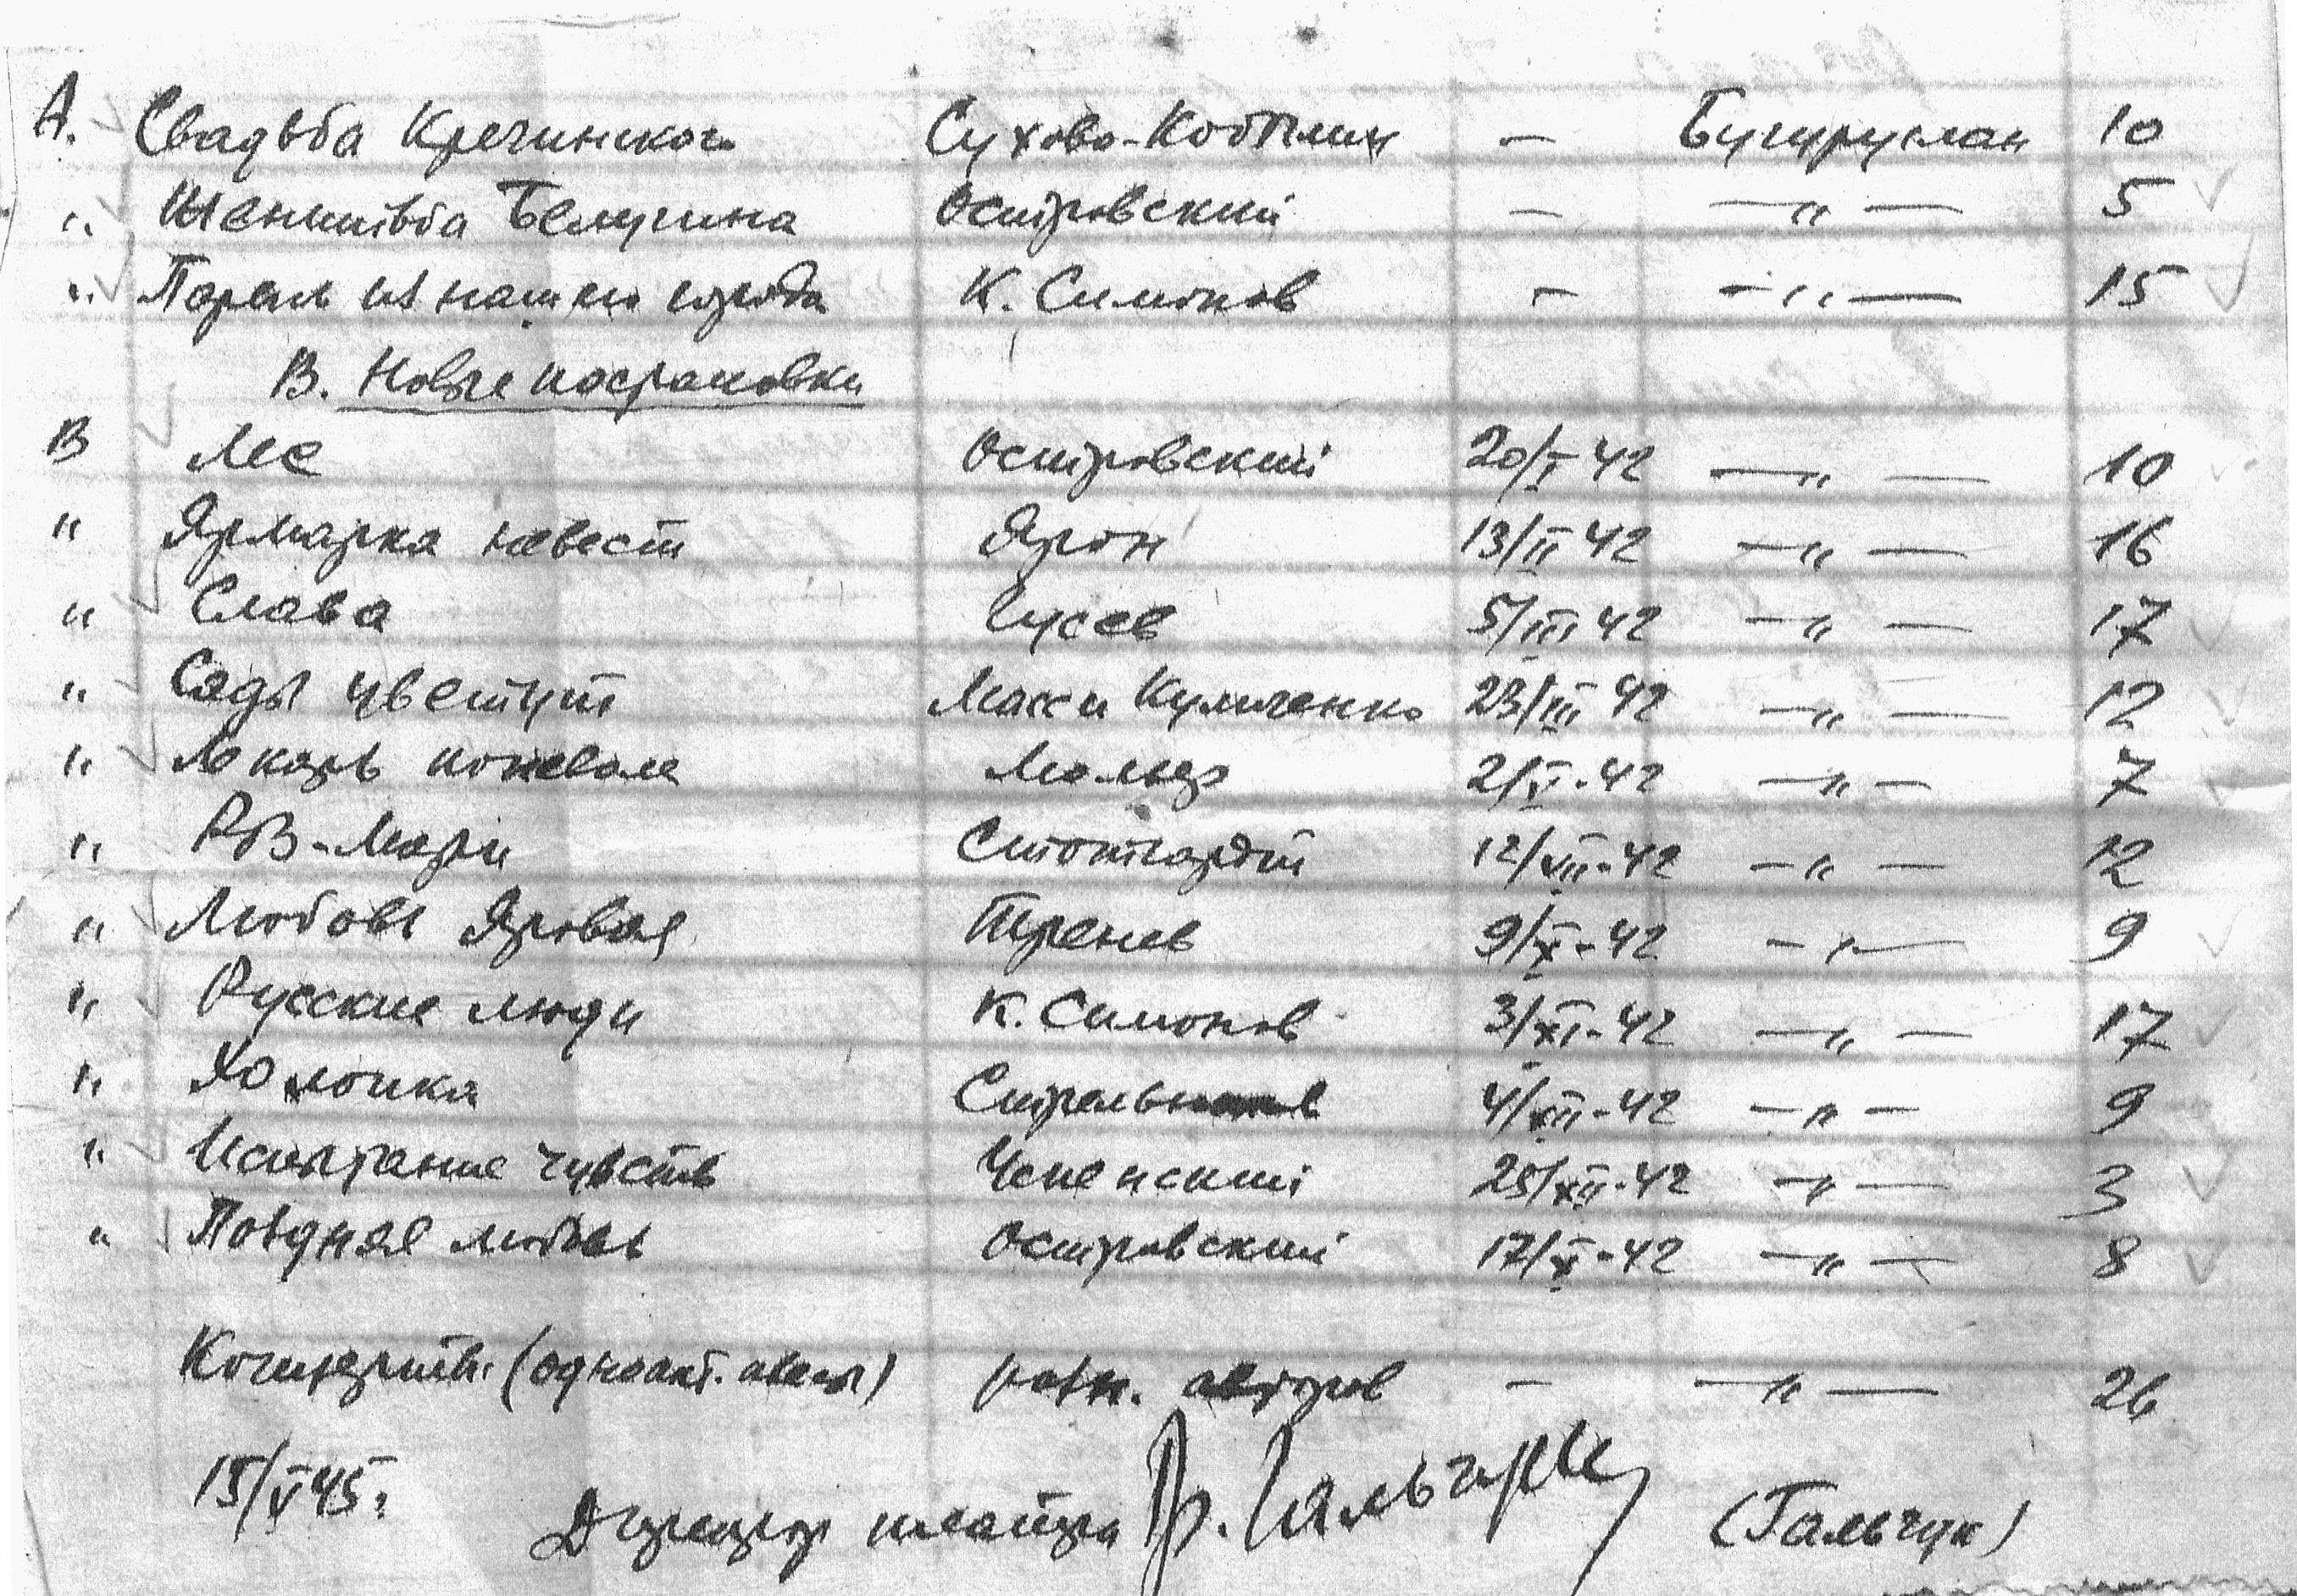 А. Свадьба Кречинского Сухово-Кобылин — Бугуруслан 10
" Женитьба Белугина Островский — —"— 5
" Парень из нашего города К. Симонов — —"— 15
В. Новые постановки
В Лес Островский 20/I 42 —"— 10
" Ярмарка невест Ярон 13/II 42 —"— 16
" Слава Гусев 5/III 42 —"— 17
" Сады цветут Масс и Куличенко 23/III 42 —"— 12
" Лекарь поневоле Мольер 2/V-42 —"— 7
" Роз-Мари Стотгардт 12/VII-42 —"— 12
" Любовь Яровая Тренев 9/X-42 —"— 9
" Русские люди К. Симонов 3/XI-42 —"— 17
" Холопка Стрельников 4/XII-42 —"— 9
" Испытание чувств 25/XII-42 —"— 3
" Поздняя любовь Островский 17/X-42 —"— 8
Концерты (одноакт. пьесы) разн. авторов — —"— 26
15/V 45г.
Директор театра Гальчук (Гальчук)